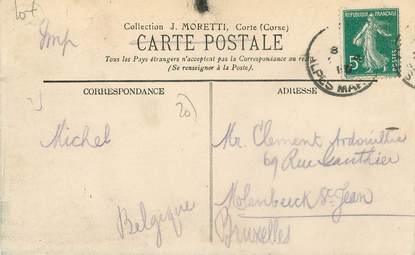 lot
Imp
Collection J. MORETTI, Corte (Corse)
CARTE POSTALE
Tous les Pays étrangers n'acceptent pas la Correspondance au
(Se renseigner à la Poste.)
REPUBLIQUE FRANÇAISE
5c
POSTES
ALPES MAR
CORRESPONDANCE
ADRESSE
20
Michel
Mr. Clément
69 Rue
Molenbeeck St Jean
Bruxelles
Belgique